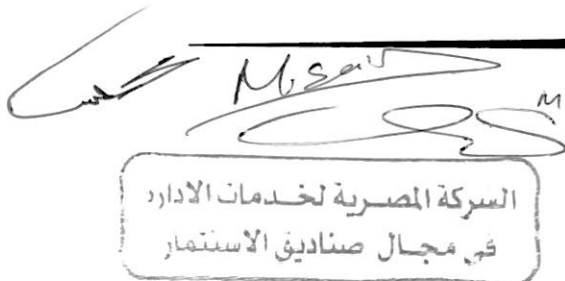 M. Said
M
الشركة المصرية لخدمات الادارة
في مجال صناديق الاستثمار